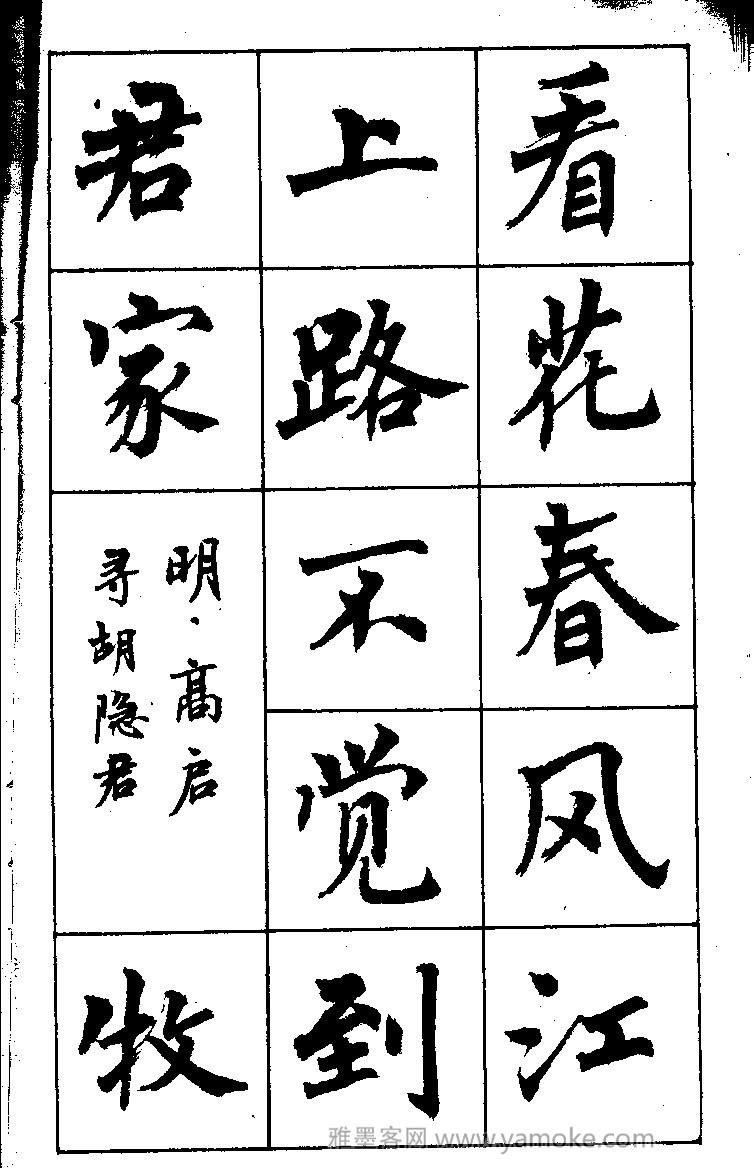 看花春风江
上路不觉到
君家
明·高启
寻胡隐君
牧
雅墨客网 www.yamoke.com